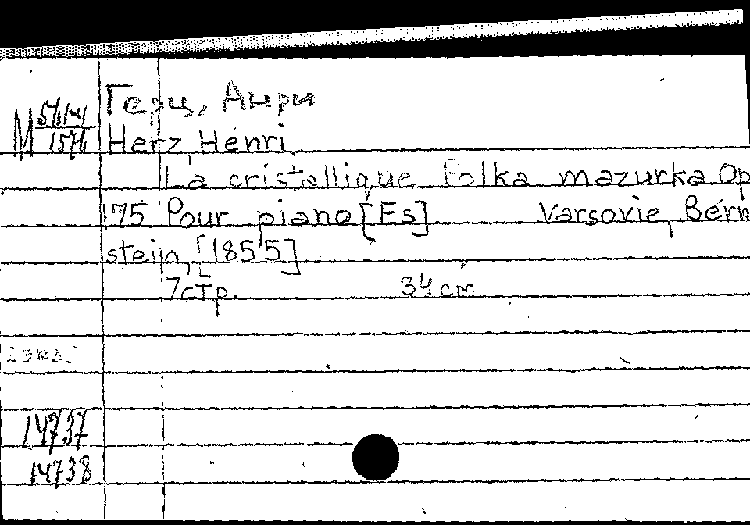 Герц, Анри
M
Herz, Henri
La cristallique Polka mazurka Op
175 Pour piano [Es] Varsovie, Bern
stein, [1855]
7 стр. 34 см
2 экз.
14737
14738